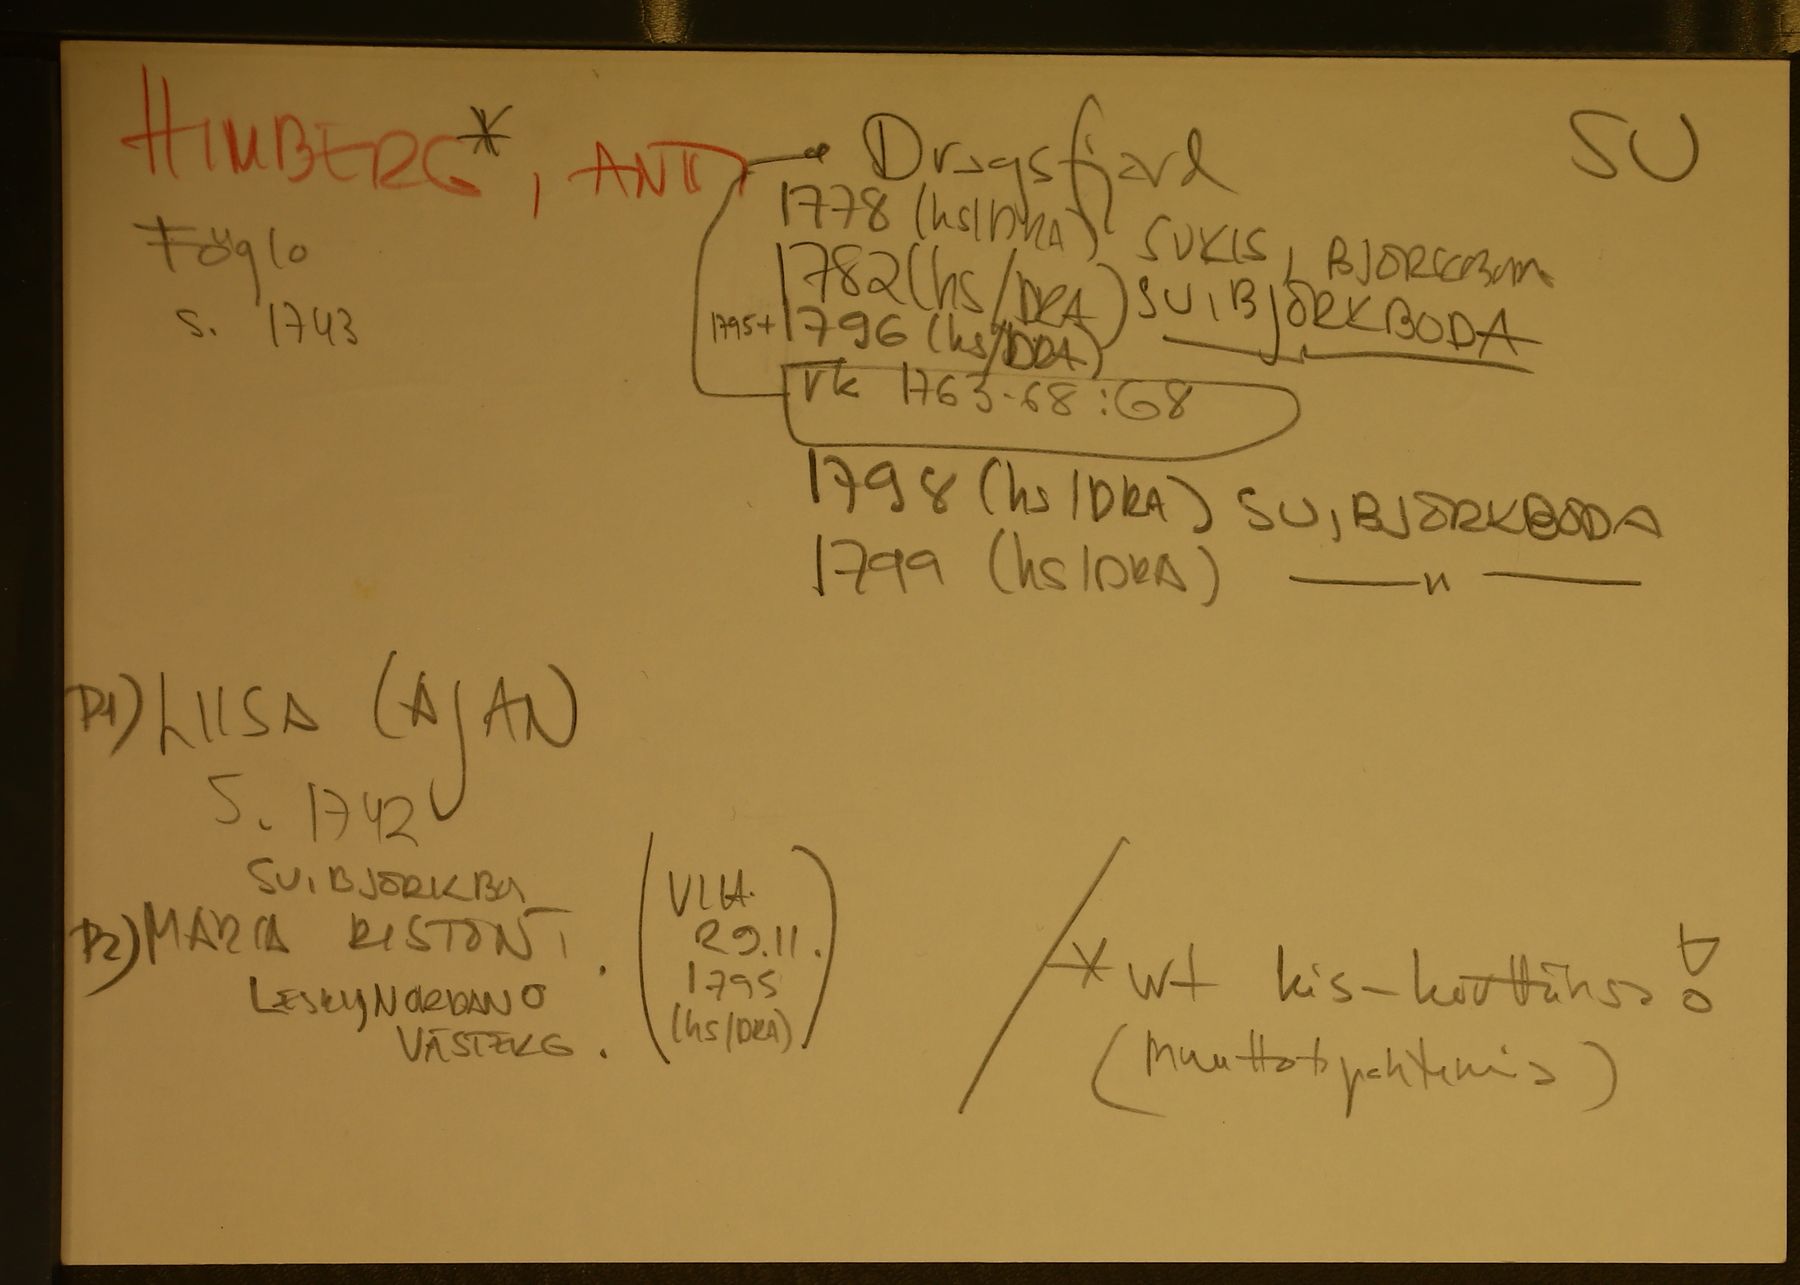 HIMBERG*, ANTI
SU
Föglö
s. 1743
Dragsfjard
1778 (hs/DRA) SUKIS, BJÖRKBDA
1782 (hs/DRA) SU, BJÖRKBODA
1795+ 1796 (hs/DRA)
rk 1763-68:68
1798 (hs/DRA) SU, BJÖRKBODA
1799 (hs/DRA) —— " ——
P1) LIISA (AJAN)
S. 1742
SU, BJÖRKBDA
P2) MARIA RISTONT.
LESKI, NORDANÖ
VÄSTERG.
(VIH.
29.11.
1795
(hs/DRA))
* wt kis-korttinsa
(muuttotapahtumia)